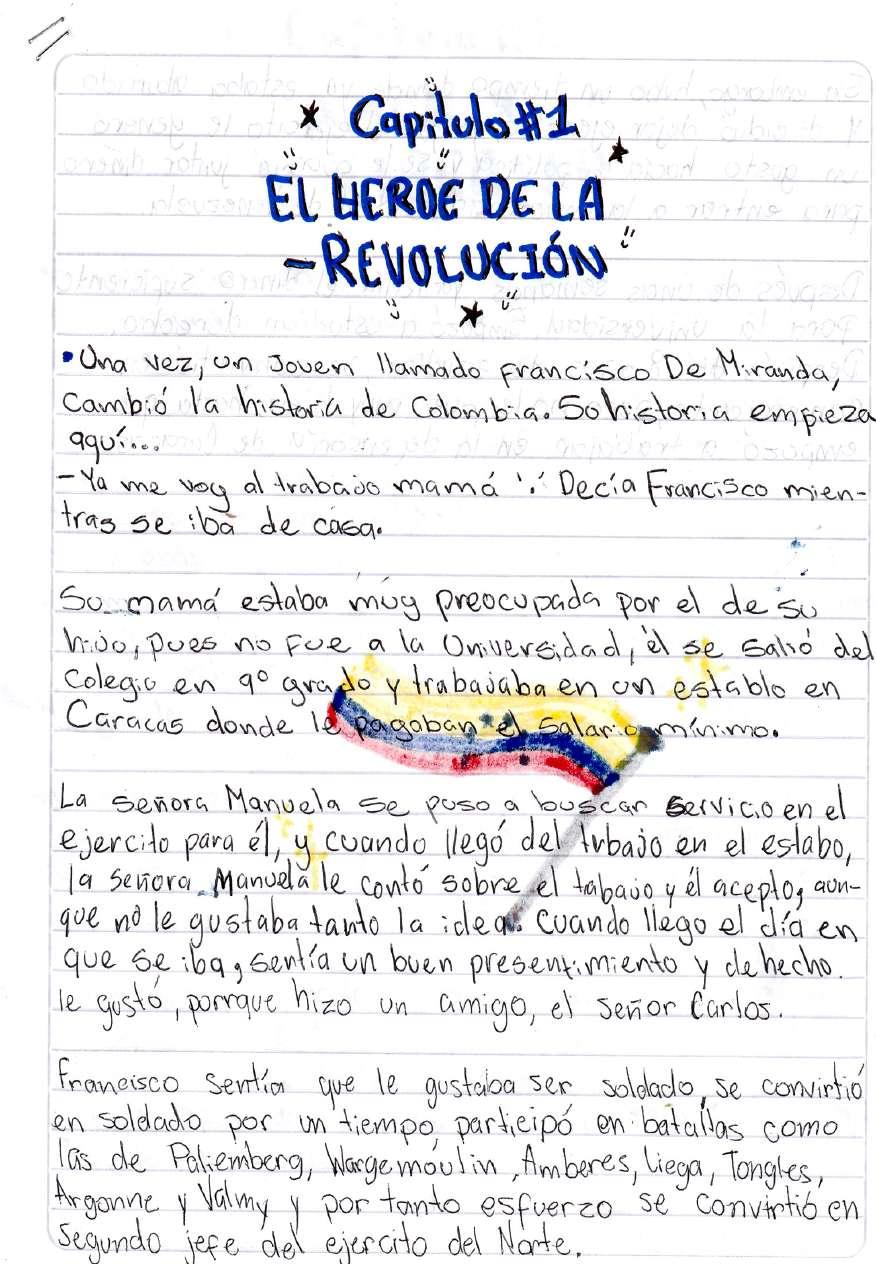 Capitulo #1
EL HEROE DE LA
- REVOLUCIÓN
• Una vez, un Joven llamado francisco De Miranda,
Cambió la historia de Colombia. Su historia empieza
aquí...
- Ya me voy al trabajo mamá ∴ Decía Francisco mien-
tras se iba de casa.
Su mamá estaba muy preocupada por el de su
hijo, pues no fue a la Universidad, él se salió del
Colegio en 9° grado y trabajaba en un establo en
Caracas donde le pagaban el salario mínimo.
La señora Manuela se puso a buscar servicio en el
ejercito para él, y cuando llegó del trbajo en el estabo,
la señora Manuela le contó sobre el tabajo y él acepto, aun-
que no le gustaba tanto la idea. Cuando llego el día en
que se iba, sentía un buen presentimiento y de hecho.
le gustó, porrque hizo un amigo, el señor Carlos.
Francisco sentía que le gustaba ser soldado, se convirtió
en soldado por un tiempo, participó en batallas como
las de Paliemberg, Wargemoulin, Amberes, Liega, Tongles,
Argonne y Valmy y por tanto esfuerzo se convirtió en
segundo jefe del ejercito del Norte.